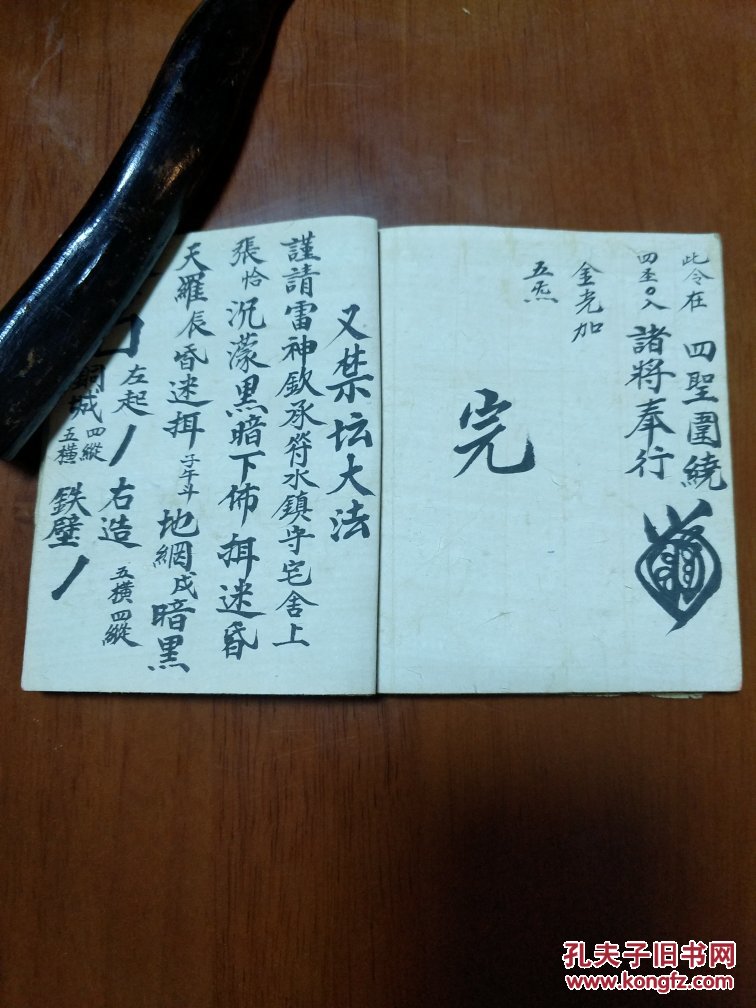 此令在 四聖圍繞
四至〇入 諸將奉行
金光加
五炁
完
又禁坛大法
謹請雷神欽承符水鎮守宅舍上
張恰況濛黑暗下佈挕迷昏
天羅辰昏迷挕 子午斗 地網戌暗黑
左起 右造 五橫四縱
銅城 四縱五橫 鉄壁
孔夫子旧书网
www.kongfz.com